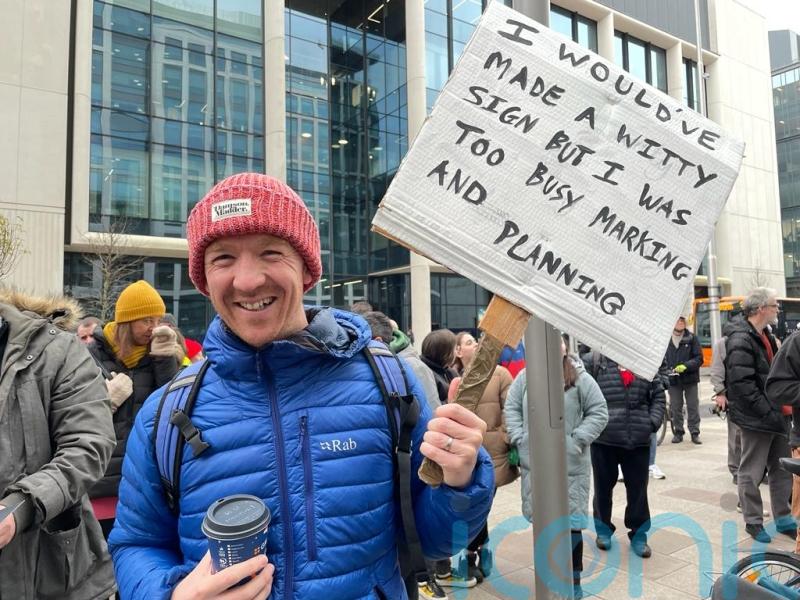 I WOULD'VE
MADE A WITTY
SIGN BUT I WAS
TOO BUSY MARKING
AND PLANNING
Damson
Madder.
Rab
iconic